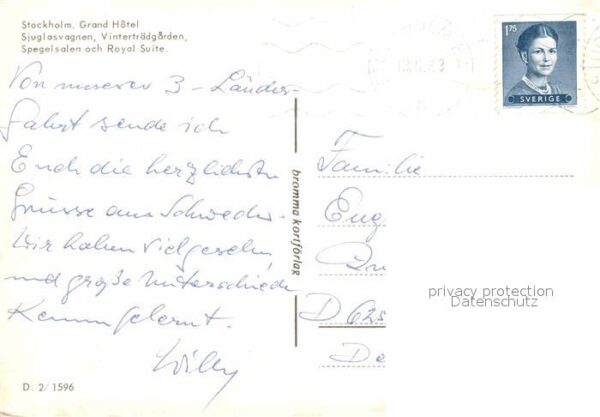 Stockholm. Grand Hôtel
Sjuglasvagnen, Vinterträdgården,
Spegelsalen och Royal Suite.
Von unserer 3-Länder-
fahrt sende ich
Euch die herzlichsten
Grüsse aus Schweden.
Wir haben viel gesehen
und große Unterschiede
kennengelernt.
Willy
D. 2/1596
bromma kortförlag
1.75
SVERIGE
Familie
Eug
D 625
privacy protection
Datenschutz